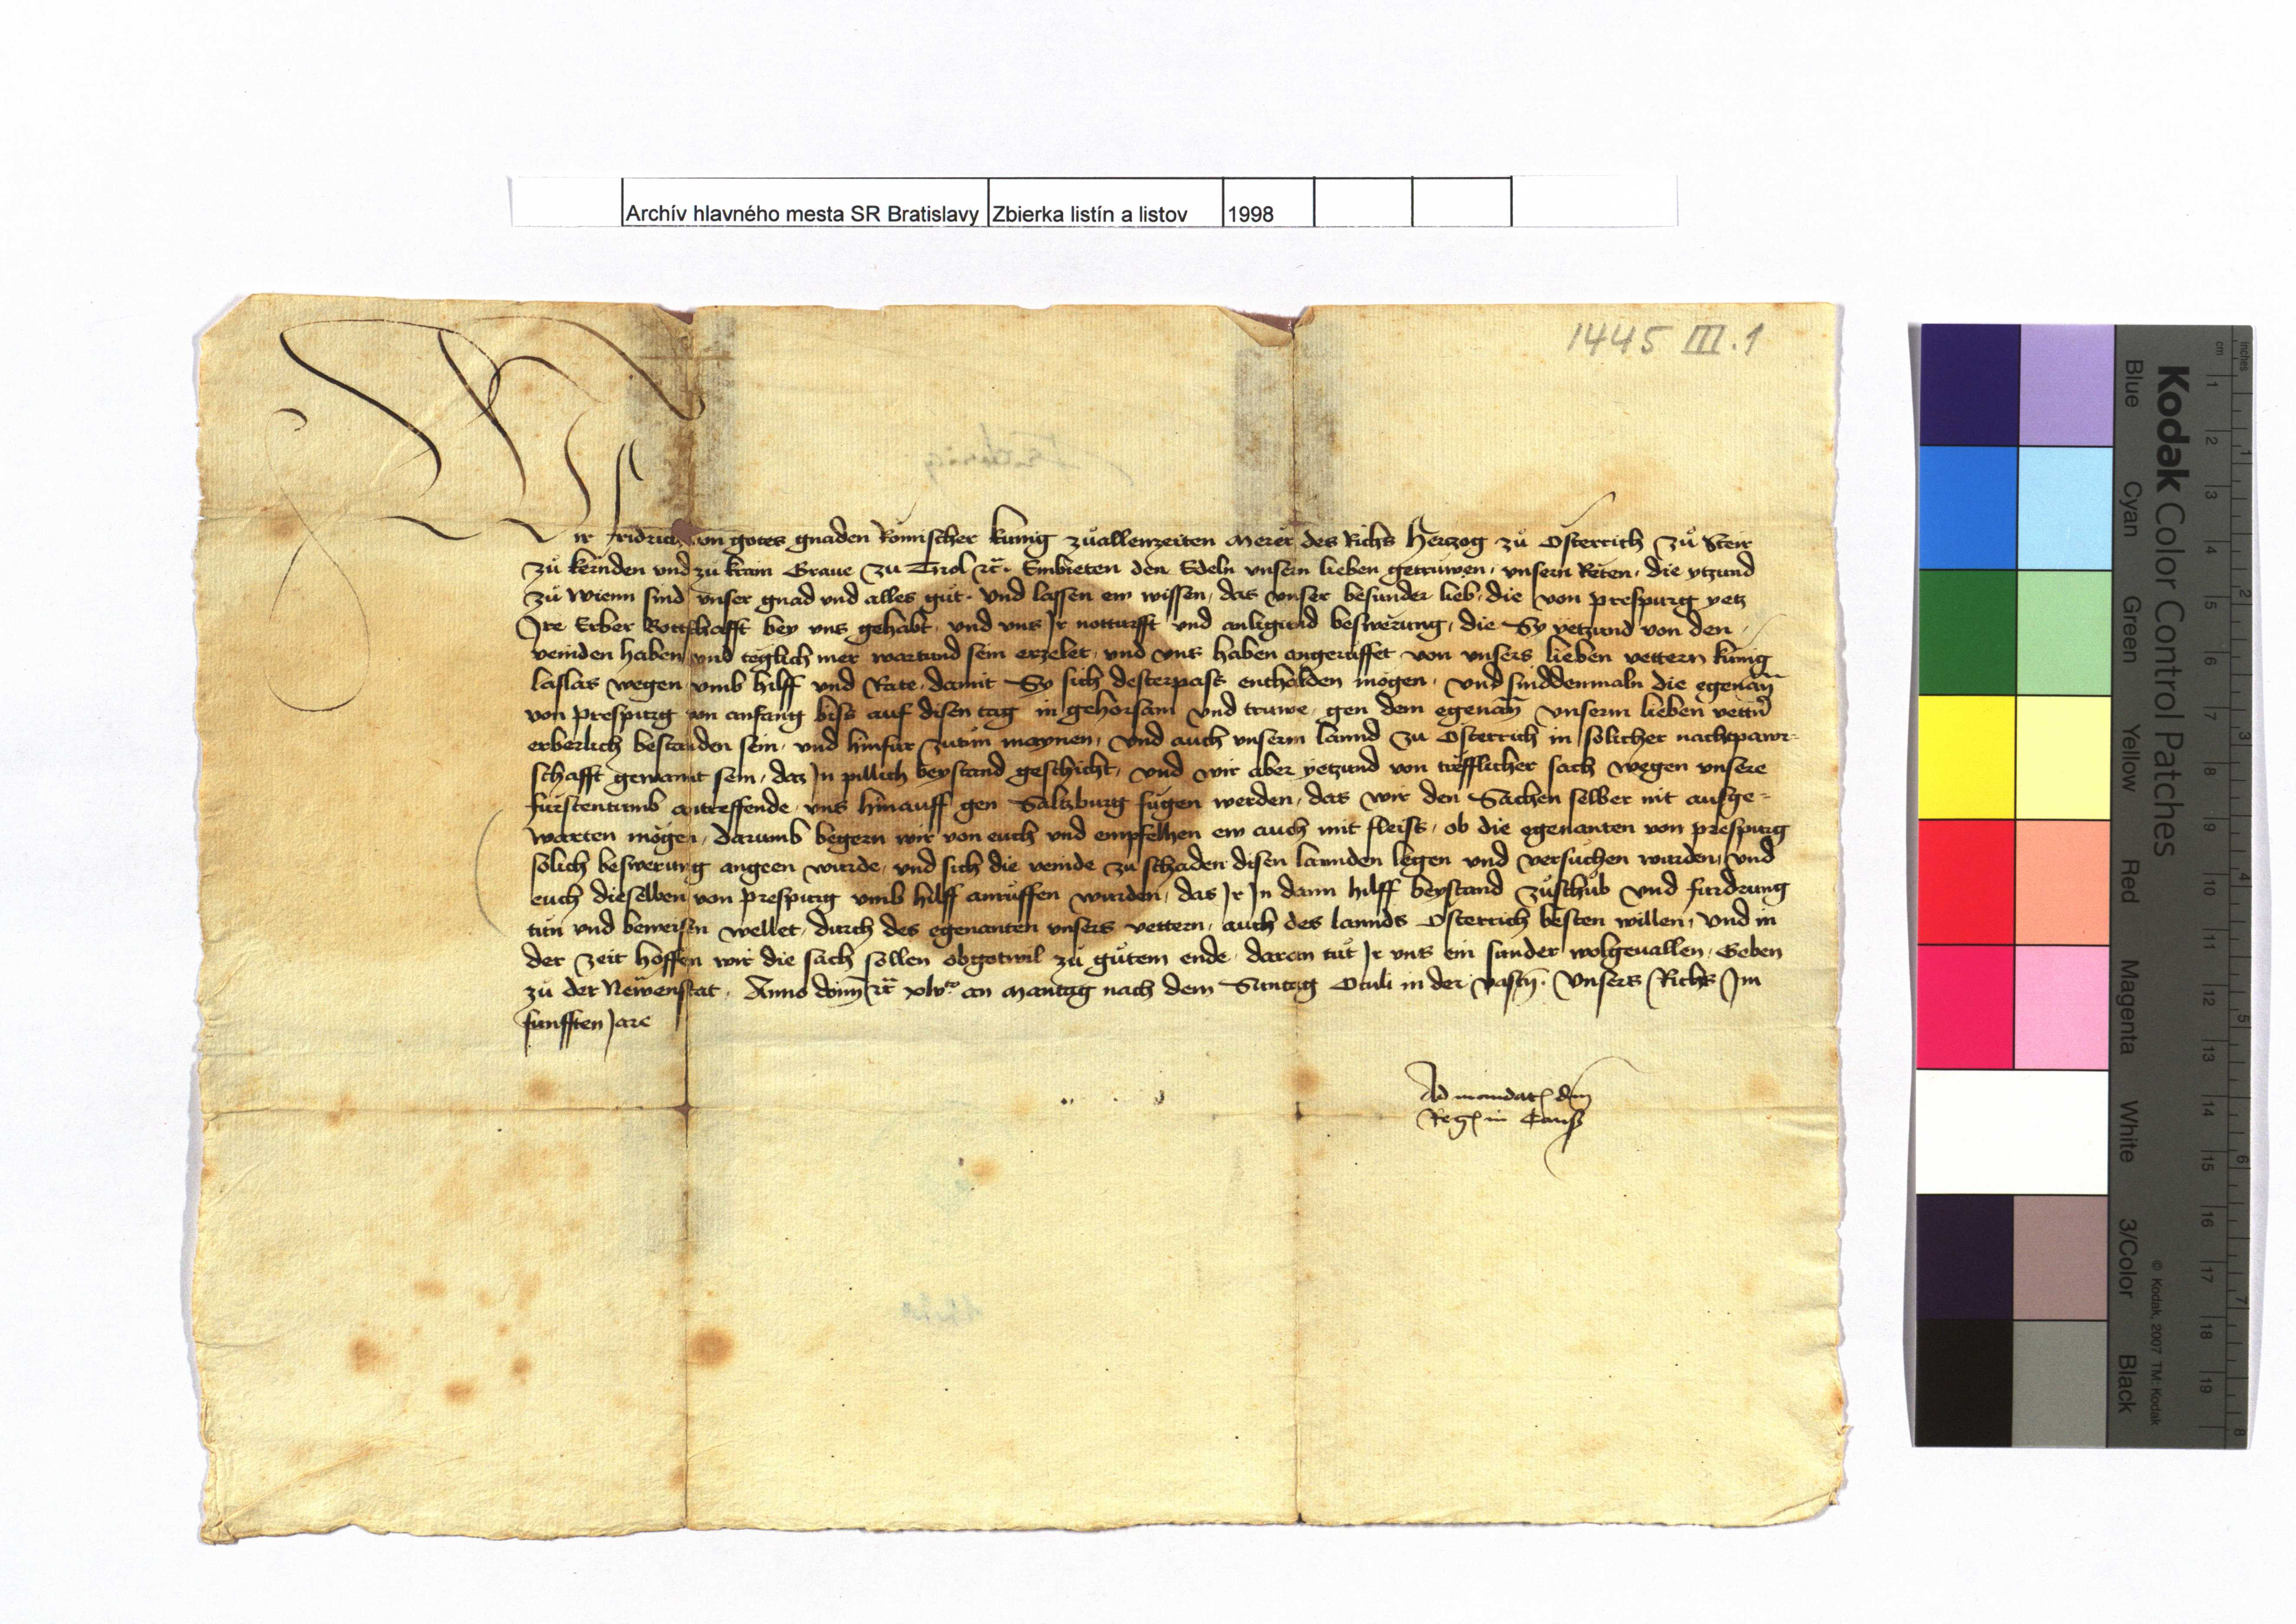 Archív hlavného mesta SR Bratislavy Zbierka listín a listov 1998
1445 III.1
Wir Fridrich von gotes gnaden Römischer kunig zůallenzeiten Merer des Richs Hertzog zů Österrich zů Steir
zů kernden und zů krain Graue zu Tirol ꝛc. Embieten den Edeln unsern lieben getruwen, unsern Reten, die ytzund
zů wienn sind unser gnad und alles gůt. Und lassen ew wissen, das unser besunder lieb, die von prespurg yetz
Ire Erber Bottschafft bey uns gehabt, und uns Ir notturfft und anligund beswerung, die Sy yetzund von den
veinden haben und teglich mer wartund sein erzelet, und uns haben angerüffet von unsers lieben vettern kunig
laslas wegen umb hilff und Rate, damit Sy sich desterpass enthalden mogen, und sinddenmaln die egenañ
von prespurg von anfang biss auf disen tag in gehorsam und truwe, gen dem egenañ unserm lieben vettn̄
erberlich bestanden sein, und hinfur zutůn maynen, und auch unserm lannd zu Osterrich in solicher nachtpawr-
schafft gewannt sein, daz In pillich beystand geschicht, und wir aber yetzund von trefflicher sach wegen unsere
furstentumb antreffende, uns hinauff gen Saltzburg fugen werden, das wir den Sachen selber nit aufge-
warten mögen, darumb begern wir von euch und empfelhen ew auch mit fleiss, ob die egenanten von prespurg
solich beswerung angeen wurde, und sich die veinde zu schaden disen lannden legen und versuchen wurden, und
euch dieselben von prespurg umb hilff anruffen wurden, das Ir In dann hilff beystand zůschůb und furdrung
tun und beweisen wellet, durch des egenanten unsers vettern, auch des lannds Osterrich besten willen, Und in
der zeit hoffen wir die sach sollen obgotwil zů gůtem ende, daran tůt Ir uns ein sunder wolgeuallen, Geben
zů der Newenstat, Anno dom̄ ꝛc xlvto an Mantag nach dem Suntag Oculi in der vastn̄. Unsers Richs Im
funfften Jare
Ad mandatum dni
Regis in Cons